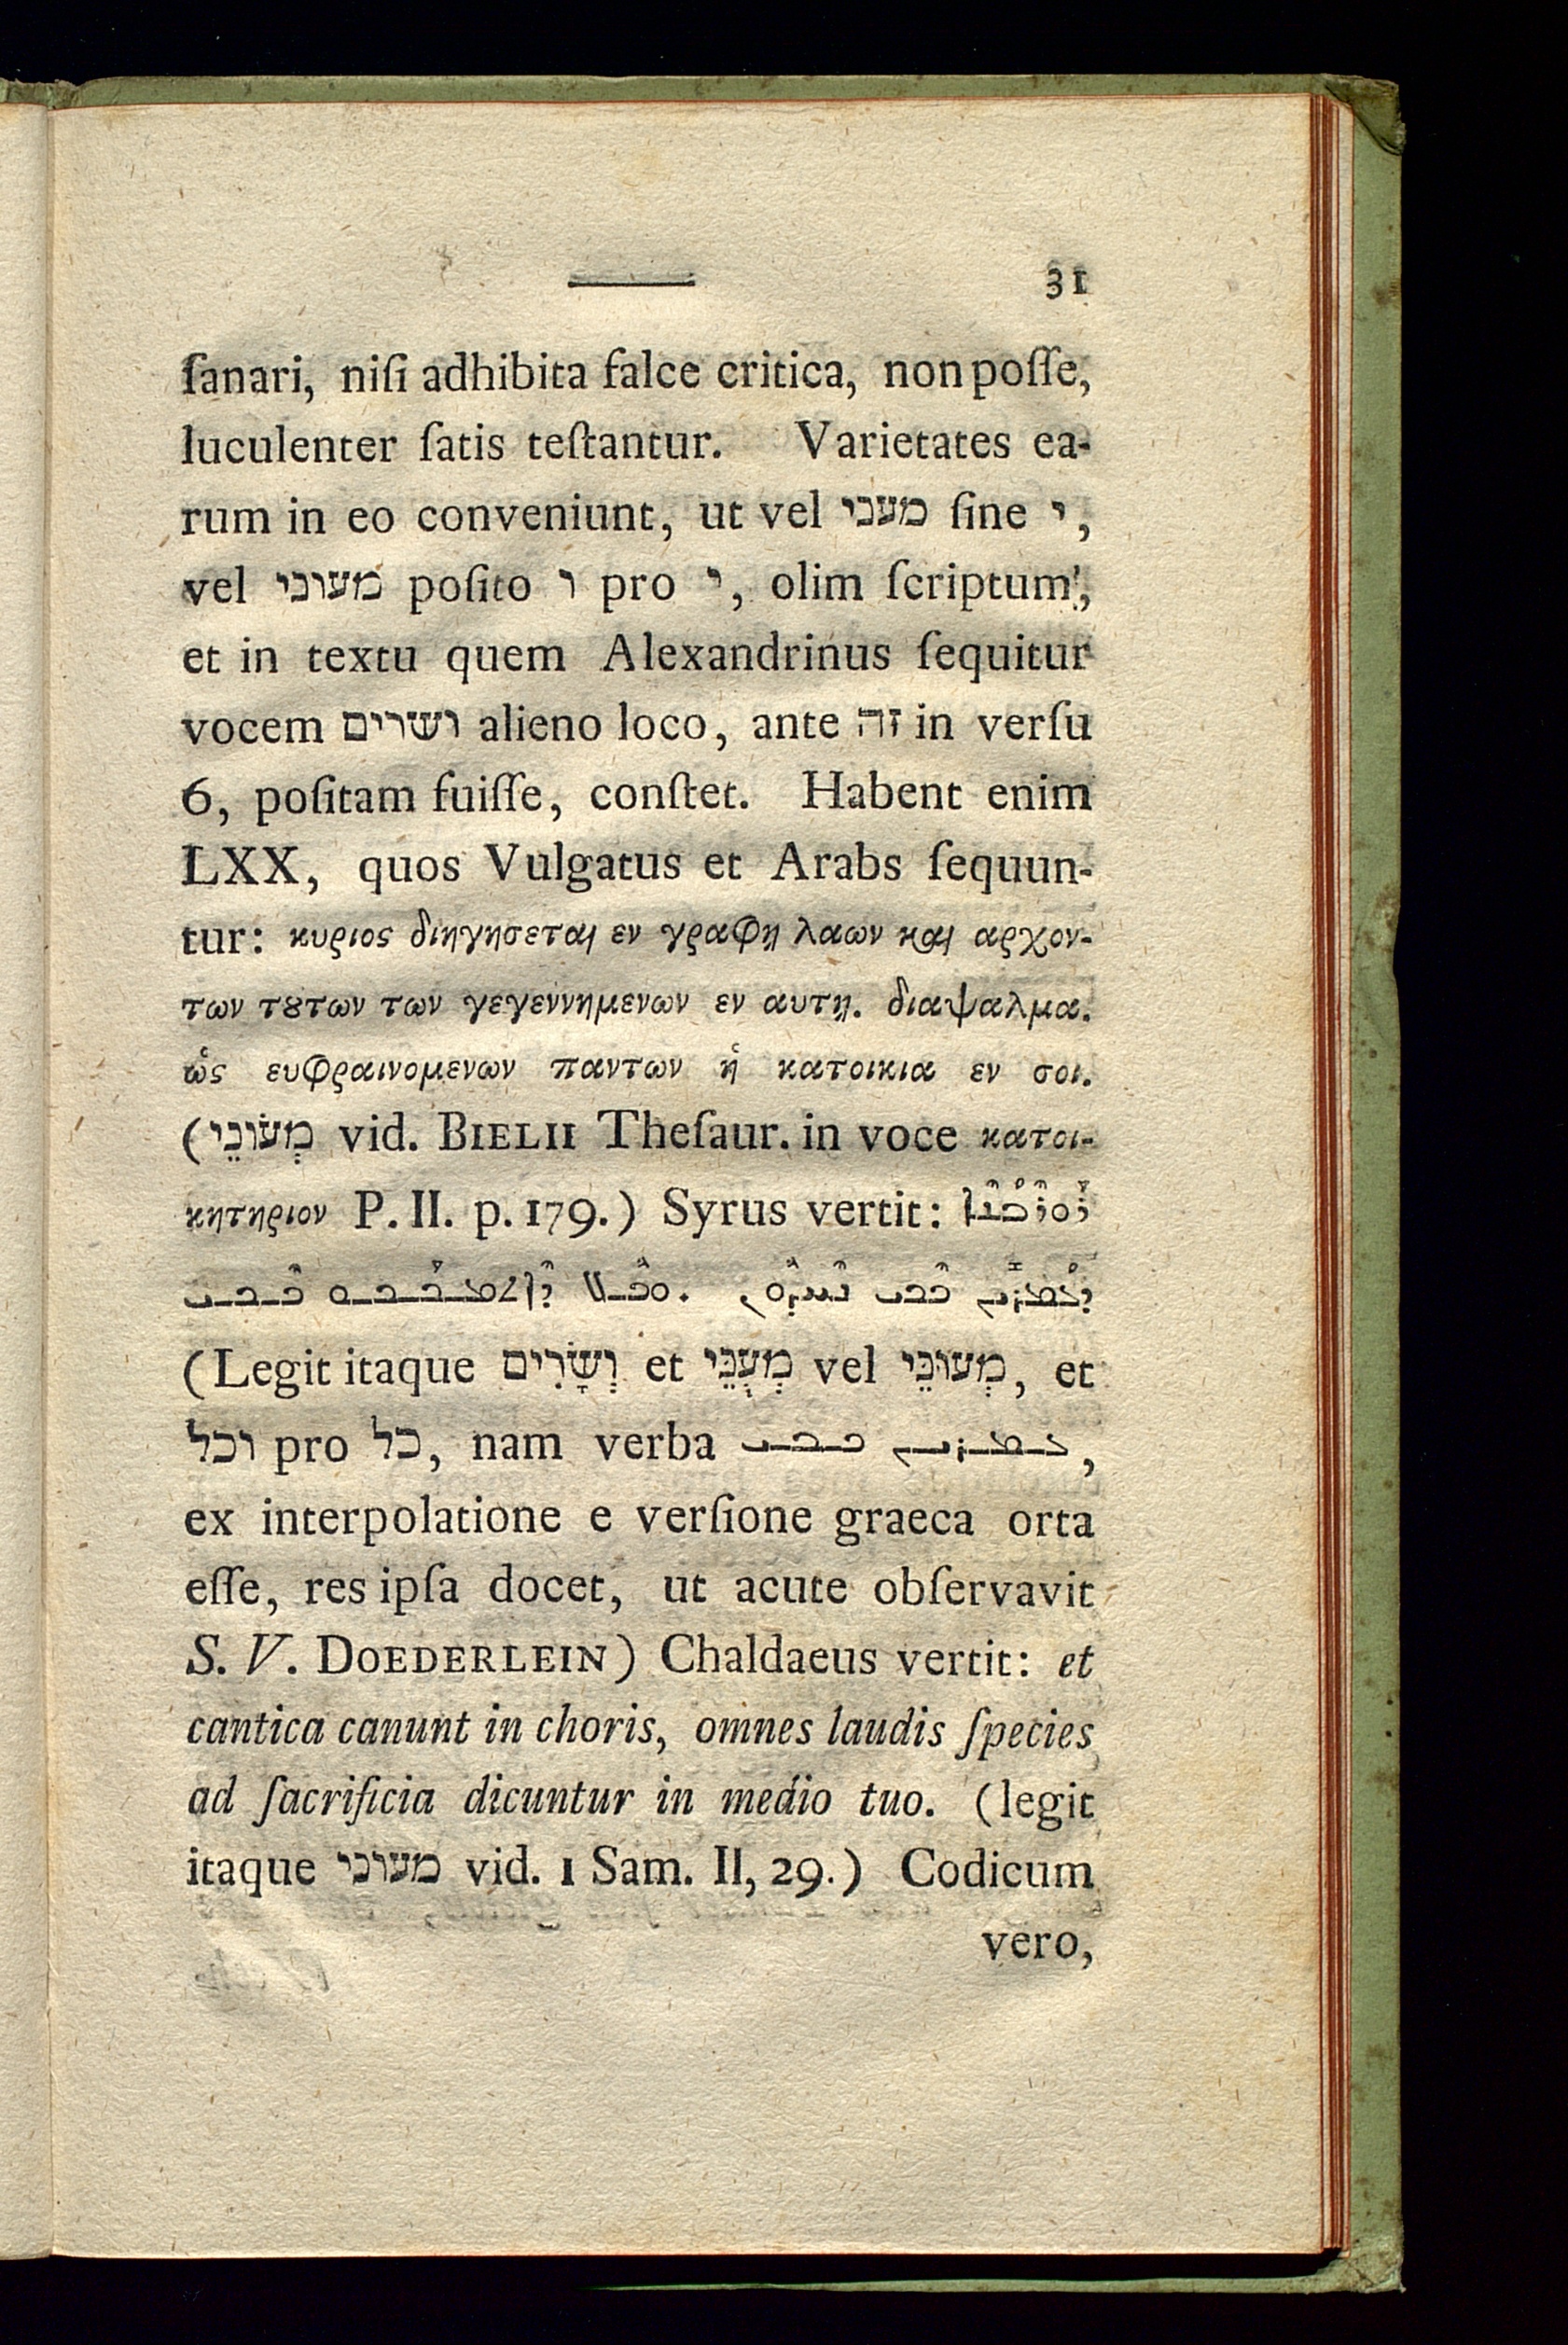 31
ſanari, niſi adhibita falce critica, non poſſe,
luculenter ſatis teſtantur. Varietates ea-
rum in eo conveniunt, ut vel מעני ſine י,
vel מעוני poſito ו pro י, olim ſcriptum,
et in textu quem Alexandrinus ſequitur
vocem ושרים alieno loco, ante זה in verſu
6, poſitam fuiſſe, conſtet. Habent enim
LXX, quos Vulgatus et Arabs ſequun-
tur: κυριος διηγησεται εν γραφῃ λαων και αρχον-
των τȣτων των γεγεννημενων εν αυτῃ. διαψαλμα.
ὡς ευφραινομενων παντων ἡ κατοικια εν σοι.
(מְעֹונֵי vid. BIELII Theſaur. in voce κατοι-
κητηριον P. II. p. 179.) Syrus vertit: ܪܘܪܒܢܐ
ܕܥܡܪܝܢ ܒܟܝ ܢܚܕܘܢ. ܘܟܠ ܕܐܬܡܟܟܘ ܒܟܝ
(Legit itaque וְשָׂרִים et מְעֻנֵּי vel מְעוּנֵּי, et
וכל pro כל, nam verba ܥܡܪܝܢ ܒܟܝ,
ex interpolatione e verſione graeca orta
eſſe, res ipſa docet, ut acute obſervavit
S. V. DOEDERLEIN) Chaldaeus vertit: et
cantica canunt in choris, omnes laudis ſpecies
ad ſacrificia dicuntur in medio tuo. (legit
itaque מעוני vid. 1 Sam. II, 29.) Codicum
vero,